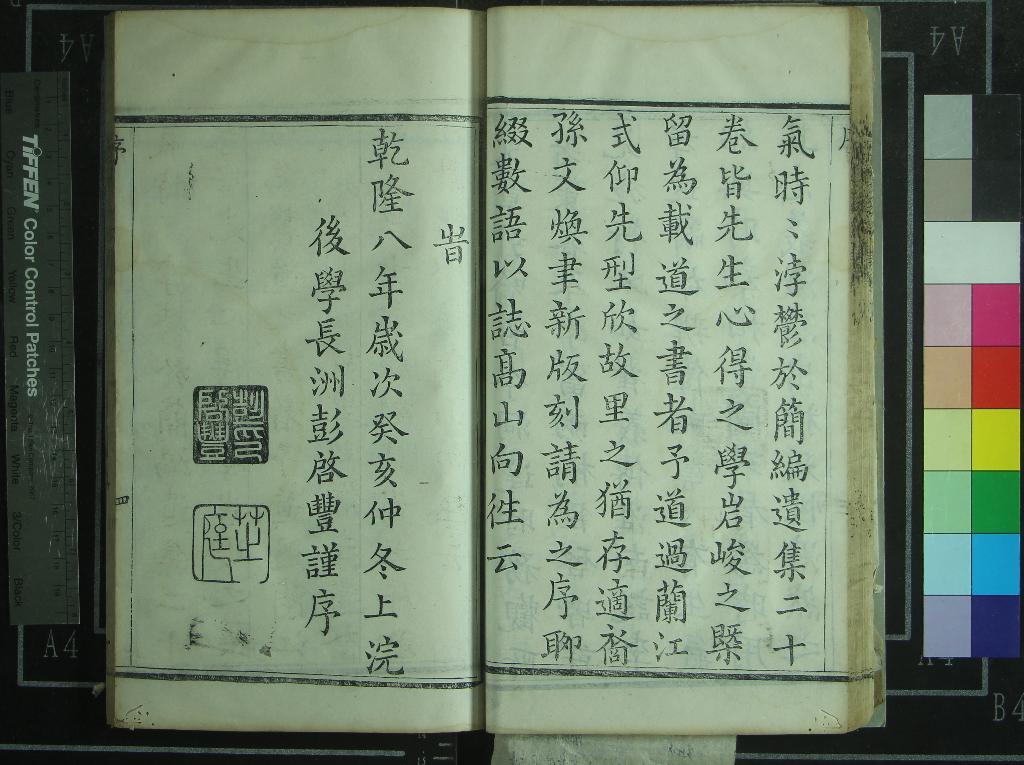 氣時〻浡鬱於簡編遺集二十
卷皆先生心得之學岩峻之槩
留為載道之書者予道過蘭江
式仰先型欣故里之猶存適裔
孫文煥聿新版刻請為之序聊
綴數語以誌高山向徃云
旹
乾隆八年歲次癸亥仲冬上浣
後學長洲彭啓豐謹序
彭啓豐印
芝庭
序
四
TIFFEN Color Control Patches
Blue
Cyan
Green
Yellow
Red
Magenta
White
3/Color
Black
A4
A4
A4
A4
B4